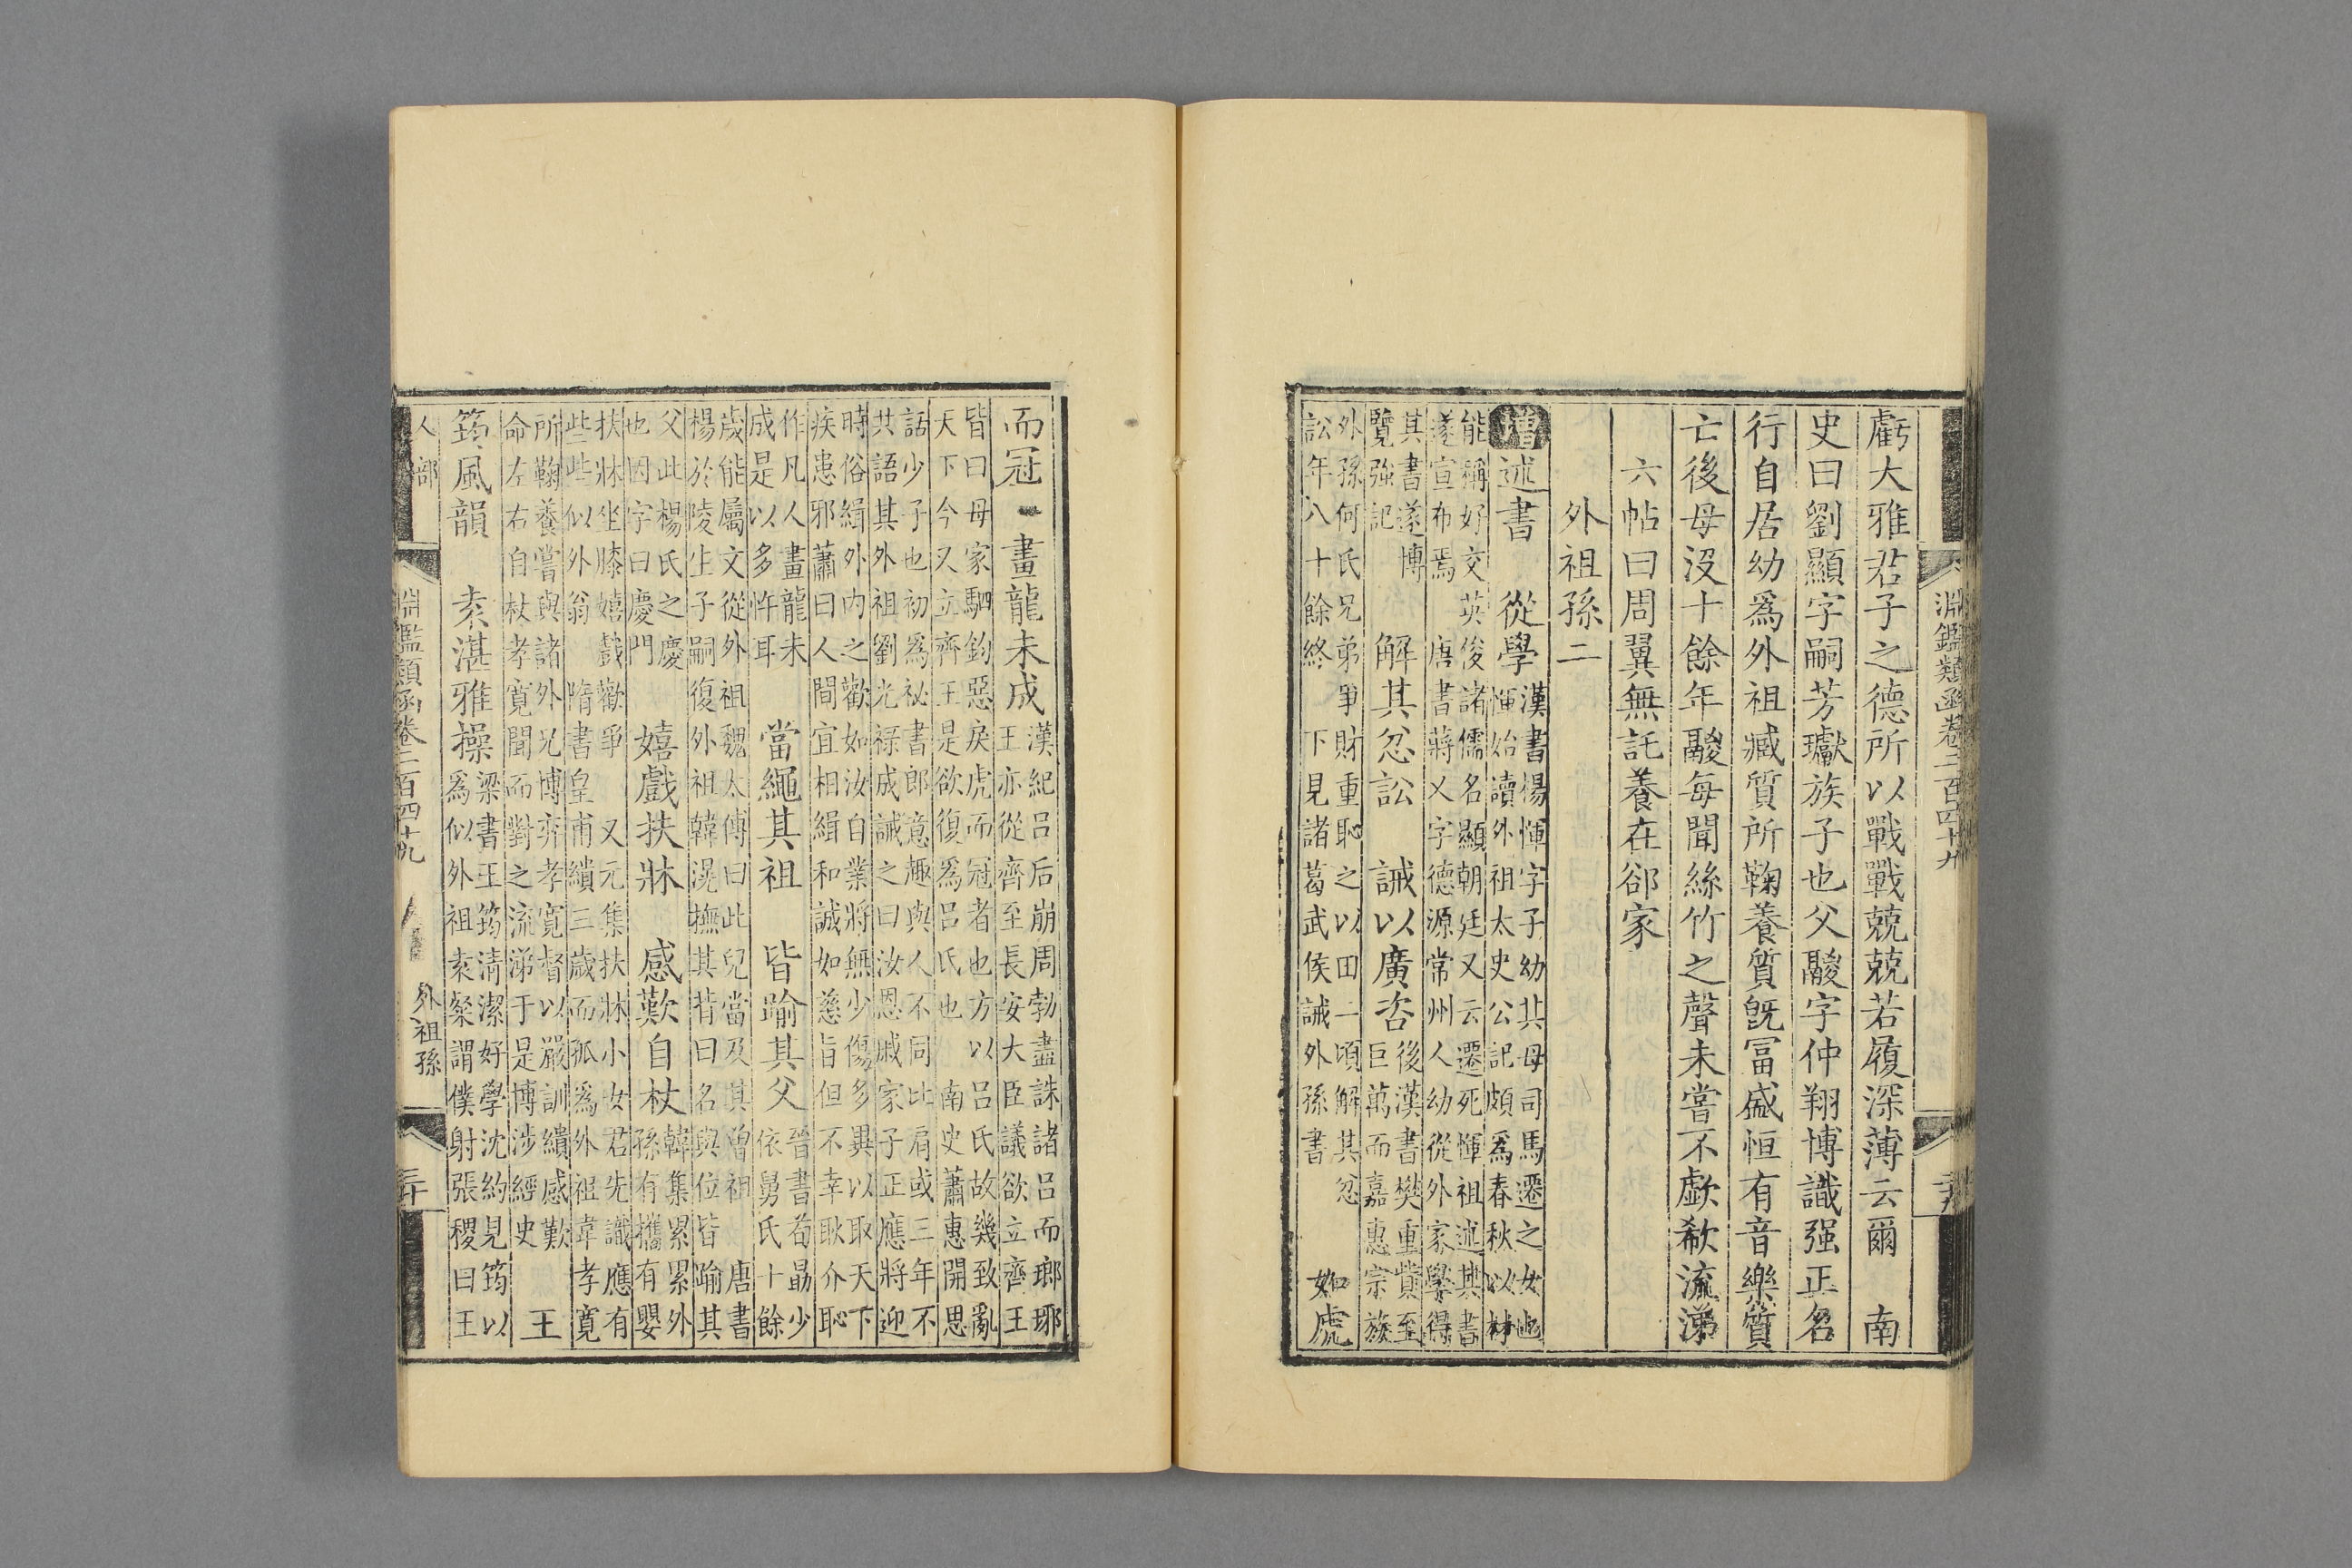 淵鑑類函卷二百四十九
二十九
虧大雅君子之德所以戰戰兢兢若履深薄云爾　南
史曰劉顯字嗣芳瓛族子也父鬷字仲翔博識强正名
行自居幼爲外祖臧質所鞠養質旣富盛恒有音樂質
亡後母沒十餘年鬷每聞絲竹之聲未嘗不歔欷流涕
六帖曰周翼無託養在郤家
外祖孫二
增述書　從學漢書楊惲字子幼其母司馬遷之女也
惲始讀外祖太史公記頗爲春秋以材
能稱好交英俊諸儒名顯朝廷又云遷死惲祖述其書
遂宣布焉　唐書蔣乂字德源常州人幼從外家學得
其書遂博
覽強記　解其忿訟　誡以廣咨後漢書樊重貲至
巨萬而嘉惠宗族
外孫何氏兄弟爭財重恥之以田二頃解其忿
訟年八十餘終　下見諸葛武侯誡外孫書　如虎
而冠　畫龍未成漢紀呂后崩周勃盡誅諸呂而瑯琊
王亦從齊至長安大臣議欲立齊王
皆曰母家駟鈞惡戾虎而冠者也方以呂氏故幾致亂
天下今又立齊王是欲復爲呂氏也　南史蕭惠開思
話少子也初爲祕書郎意趣與人不同比肩或三年不
共語其外祖劉光祿成誡之曰汝恩戚家子正應將迎
時俗緝外內之歡如汝自業將無少傷多異以取天下
疾患邪蕭曰人間宜相緝和誠如慈旨但不幸耿介恥
作凡人畫龍未
成是以多忤耳　當繩其祖　皆踰其父晉書荀勗少
依舅氏十餘
歲能屬文從外祖魏太傅曰此兒當及其曾祖　唐書
楊於陵生子嗣復外祖韓滉撫其背曰名與位皆踰其
父此楊氏之慶
也因字曰慶門　嬉戲扶牀　感歎自杖韓集累累外
孫有攜有嬰
扶牀坐膝嬉戲歡爭　又元集扶牀小女君先識應有
些些似外翁　隋書皇甫績三歲而孤爲外祖韋孝寬
所鞠養嘗與諸外兄博弈孝寬督以嚴訓績感歎
命左右自杖孝寬聞而對之流涕于是博涉經史　王
筠風韻　袁湛雅操梁書王筠淸潔好學沈約見筠以
爲似外祖袁粲謂僕射張稷曰王
人部
淵鑑類函卷二百四十九
外祖孫
三十